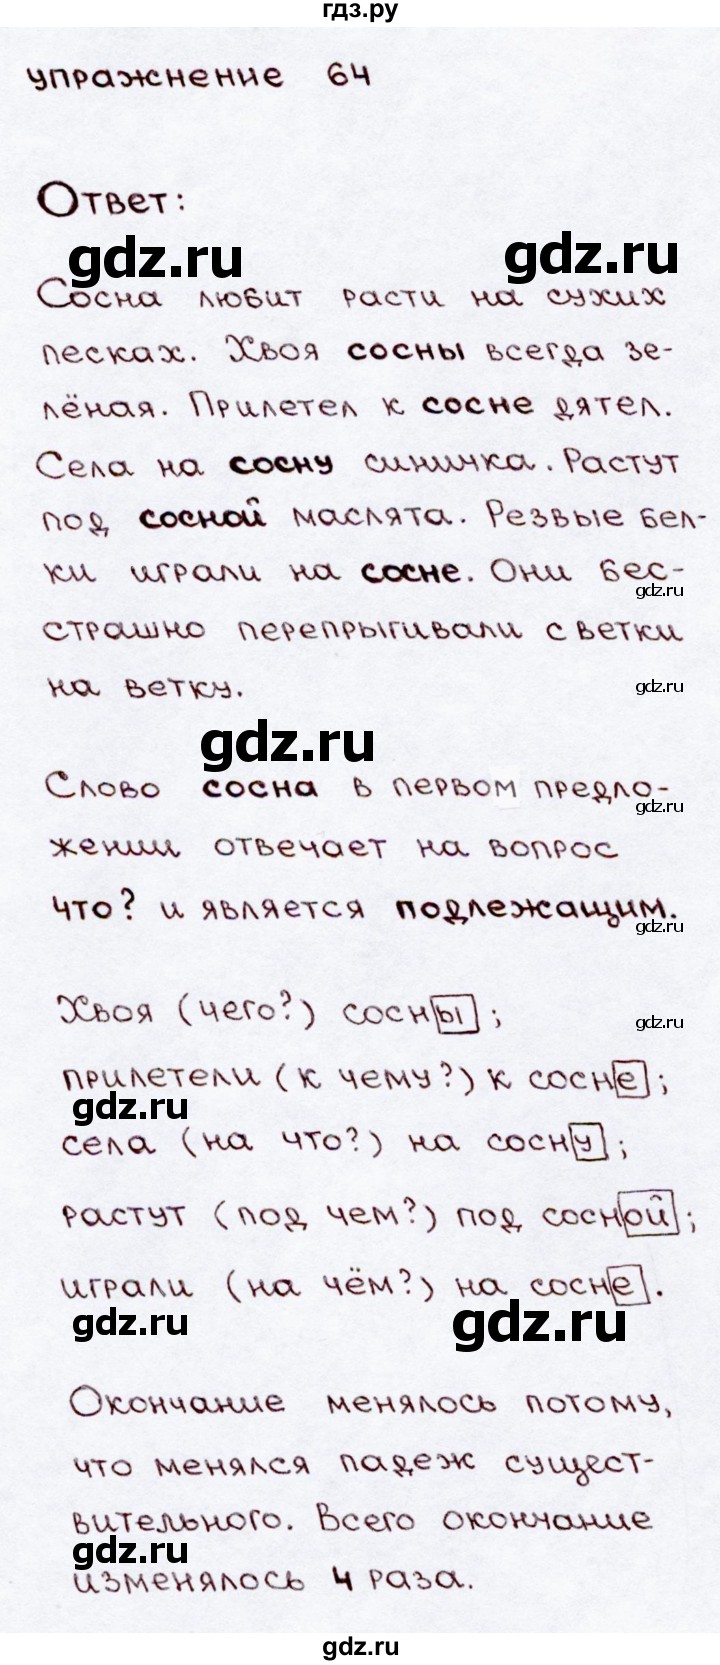 гдз.ру
упражнение 64
Ответ:
gdz.ru
gdz.ru
Сосна любит расти на сухих
песках. Хвоя сосны всегда зе-
лёная. Прилетел к сосне дятел.
Села на сосну синичка. Растут
под сосной маслята. Резвые бел-
ки играли на сосне. Они бес-
gdz.ru
страшно перепрыгивали с ветки
на ветку.
gdz.ru
gdz.ru
Слово сосна в первом предло-
gdz.ru
жении отвечает на вопрос
что? и является подлежащим.
gdz.ru
Хвоя (чего?) сосны;
gdz.ru
прилетели (к чему?) к сосне;
gdz.ru
села (на что?) на сосну;
растут (под чем?) под сосной;
играли (на чём?) на сосне.
gdz.ru
gdz.ru
Окончание менялось потому,
что менялся падеж сущест-
вительного. Всего окончание
gdz.ru
изменялось 4 раза.
gdz.ru